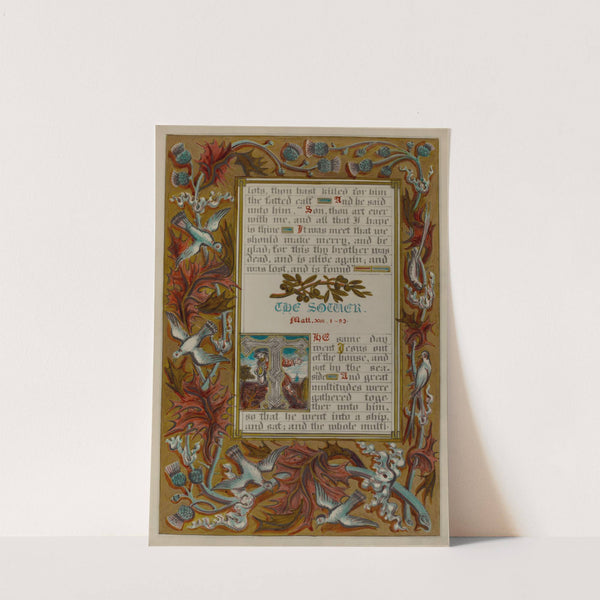 lots, thou hast killed for him
the fatted calf And he said
unto him, "Son, thou art ever
with me, and all that I have
is thine It was meet that we
should make merry, and be
glad; for this thy brother was
dead, and is alive again; and
was lost, and is found"
THE SOWER.
Matt. XIII. 1-52.
THE same day
went Jesus out
of the house, and
sat by the sea-
side And great
multitudes were
gathered toge-
ther unto him,
so that he went into a ship,
and sat; and the whole multi-